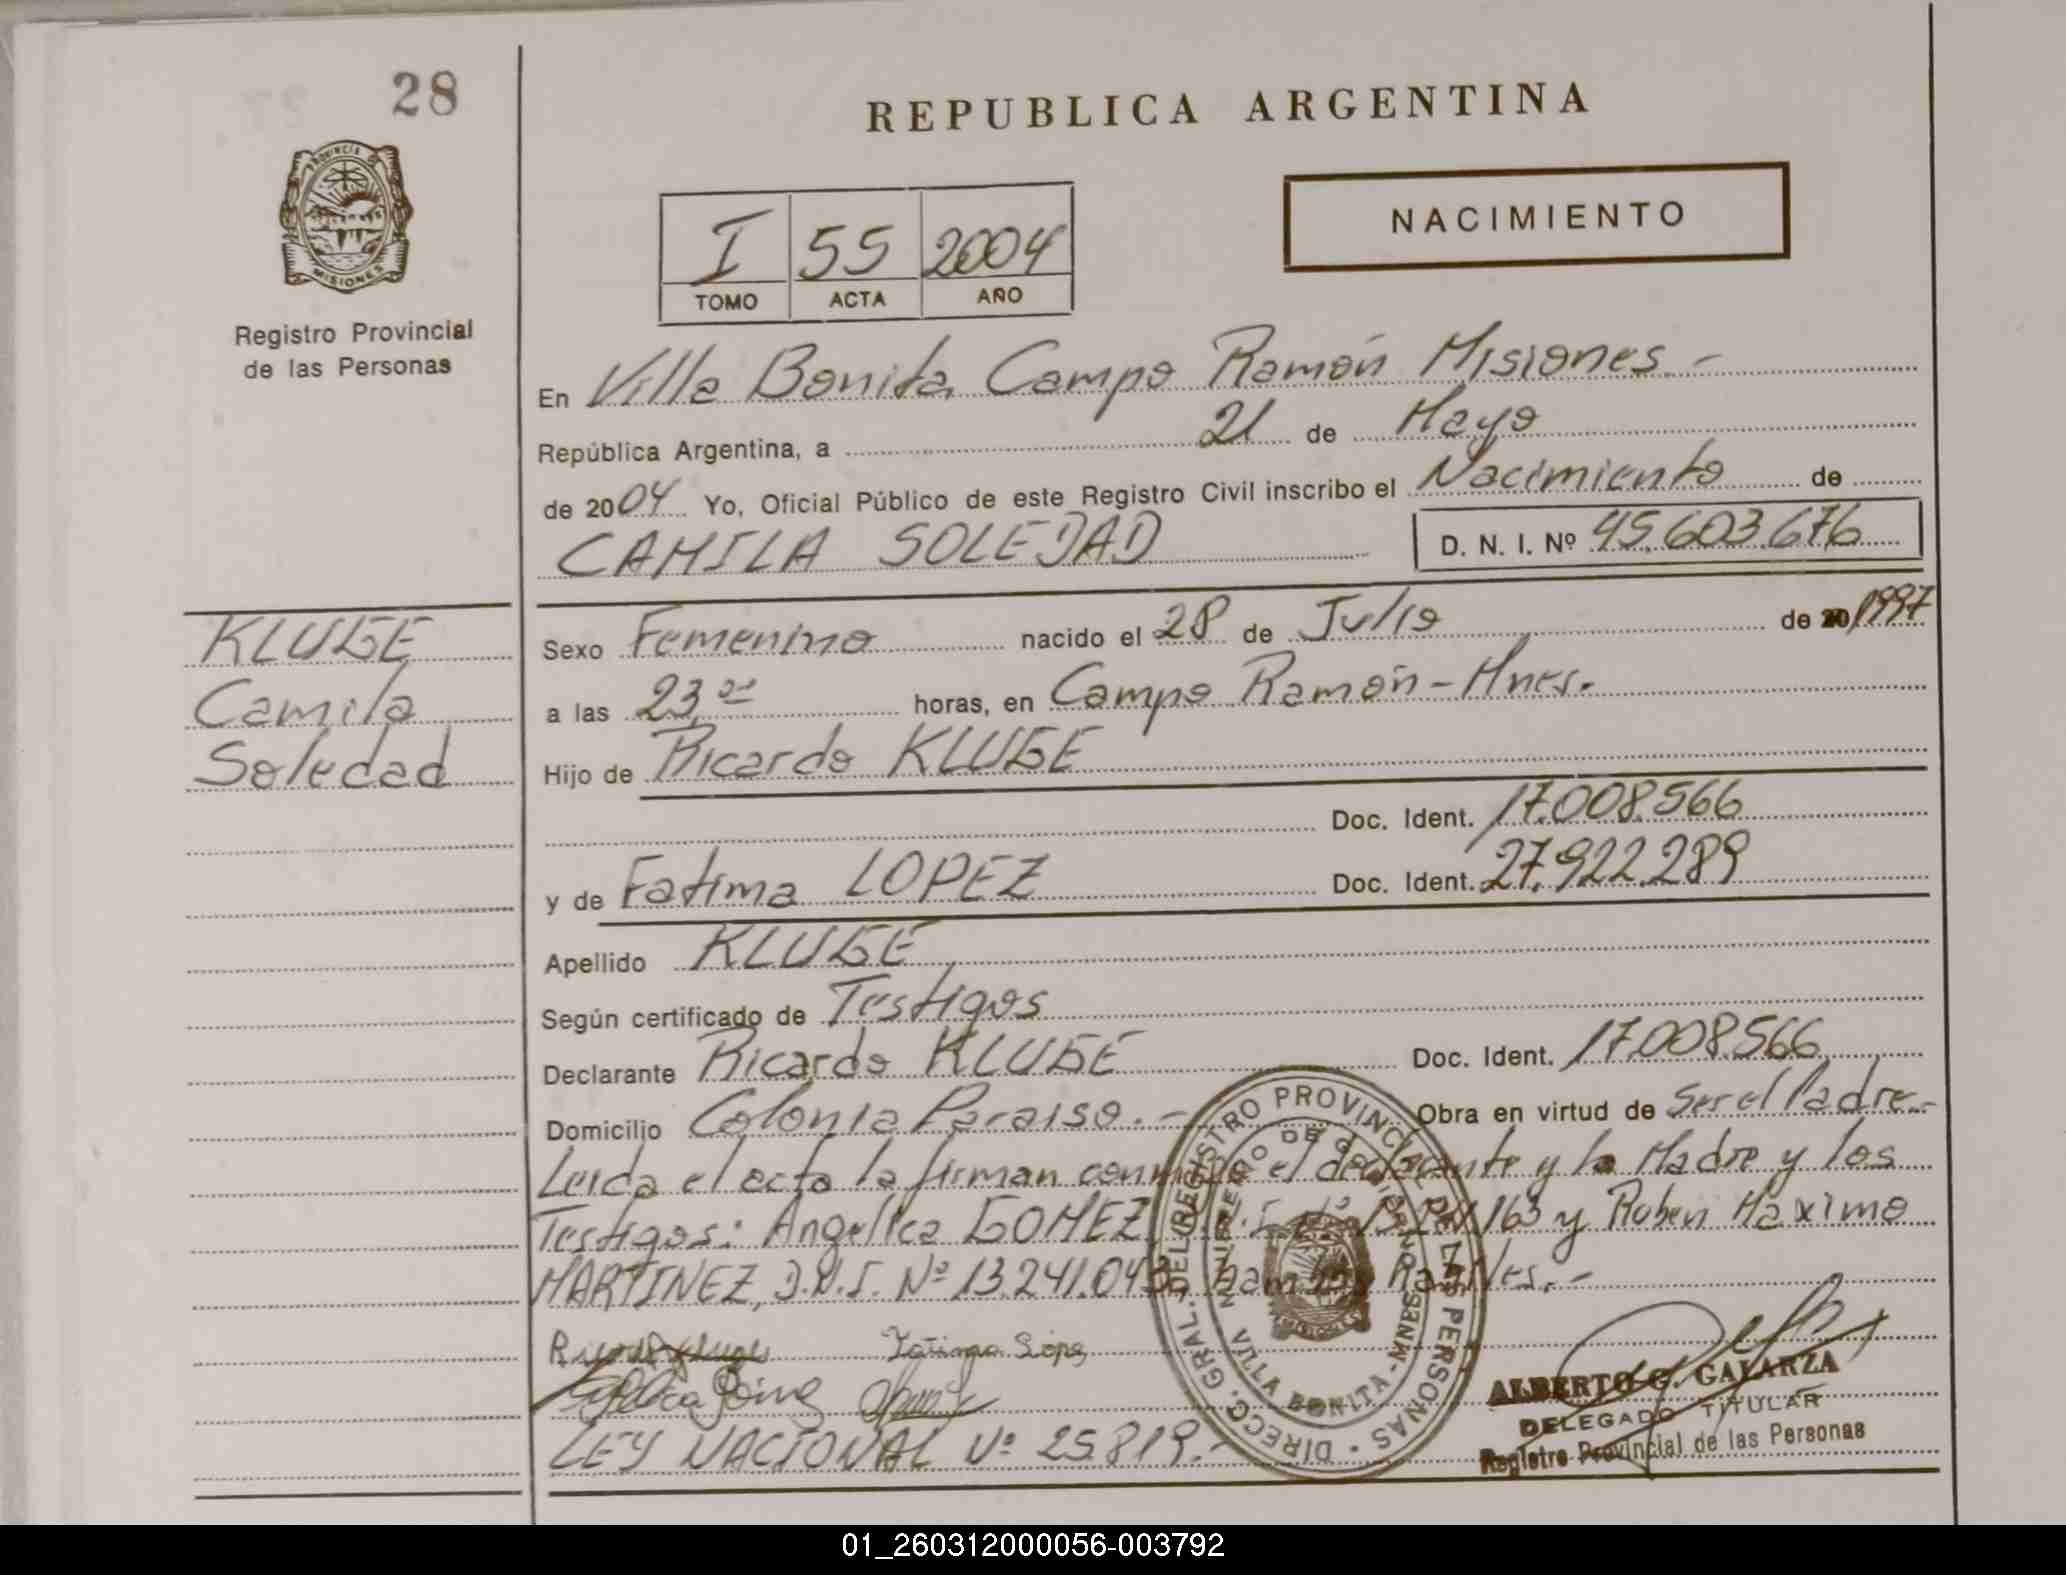 28
PROVINCIA DE
MISIONES
Registro Provincial
de las Personas
REPUBLICA ARGENTINA
NACIMIENTO
I 55 2004
TOMO ACTA AÑO
En Villa Bonita, Campo Ramón Misiones.-
República Argentina, a 21 de Mayo
de 2004 Yo, Oficial Público de este Registro Civil inscribo el Nacimiento de
CAMILA SOLEDAD D. N. I. Nº 45.603.676
KLUGE
Camila
Soledad
Sexo Femenino nacido el 28 de Julio de 20 1997
a las 23,00 horas, en Campo Ramón-Mnes.
Hijo de Ricardo KLUGE
Doc. Ident. 17.008.566
y de Fatima LOPEZ Doc. Ident. 27.922.289
Apellido KLUGE
Según certificado de Testigos
Declarante Ricardo KLUGE Doc. Ident. 17.008.566
Domicilio Colonia Paraiso.- Obra en virtud de Ser el Padre.-
Leida el acta la firman conmigo el declarante y la Madre y los
Testigos: Angelica GOMEZ, 163 y Ruben Maximo
MARTINEZ, D.N.I. Nº 13.241.043,
Fatima Lope
LEY NACIONAL Nº 25.819.-
DIRECC. GRAL. DEL REGISTRO PROVINCIAL DE LAS PERSONAS
MINISTERIO DE GOBIERNO
VILLA BONITA - MNES
ALBERTO G. GALARZA
DELEGADO TITULAR
Registro Provincial de las Personas
01_260312000056-003792